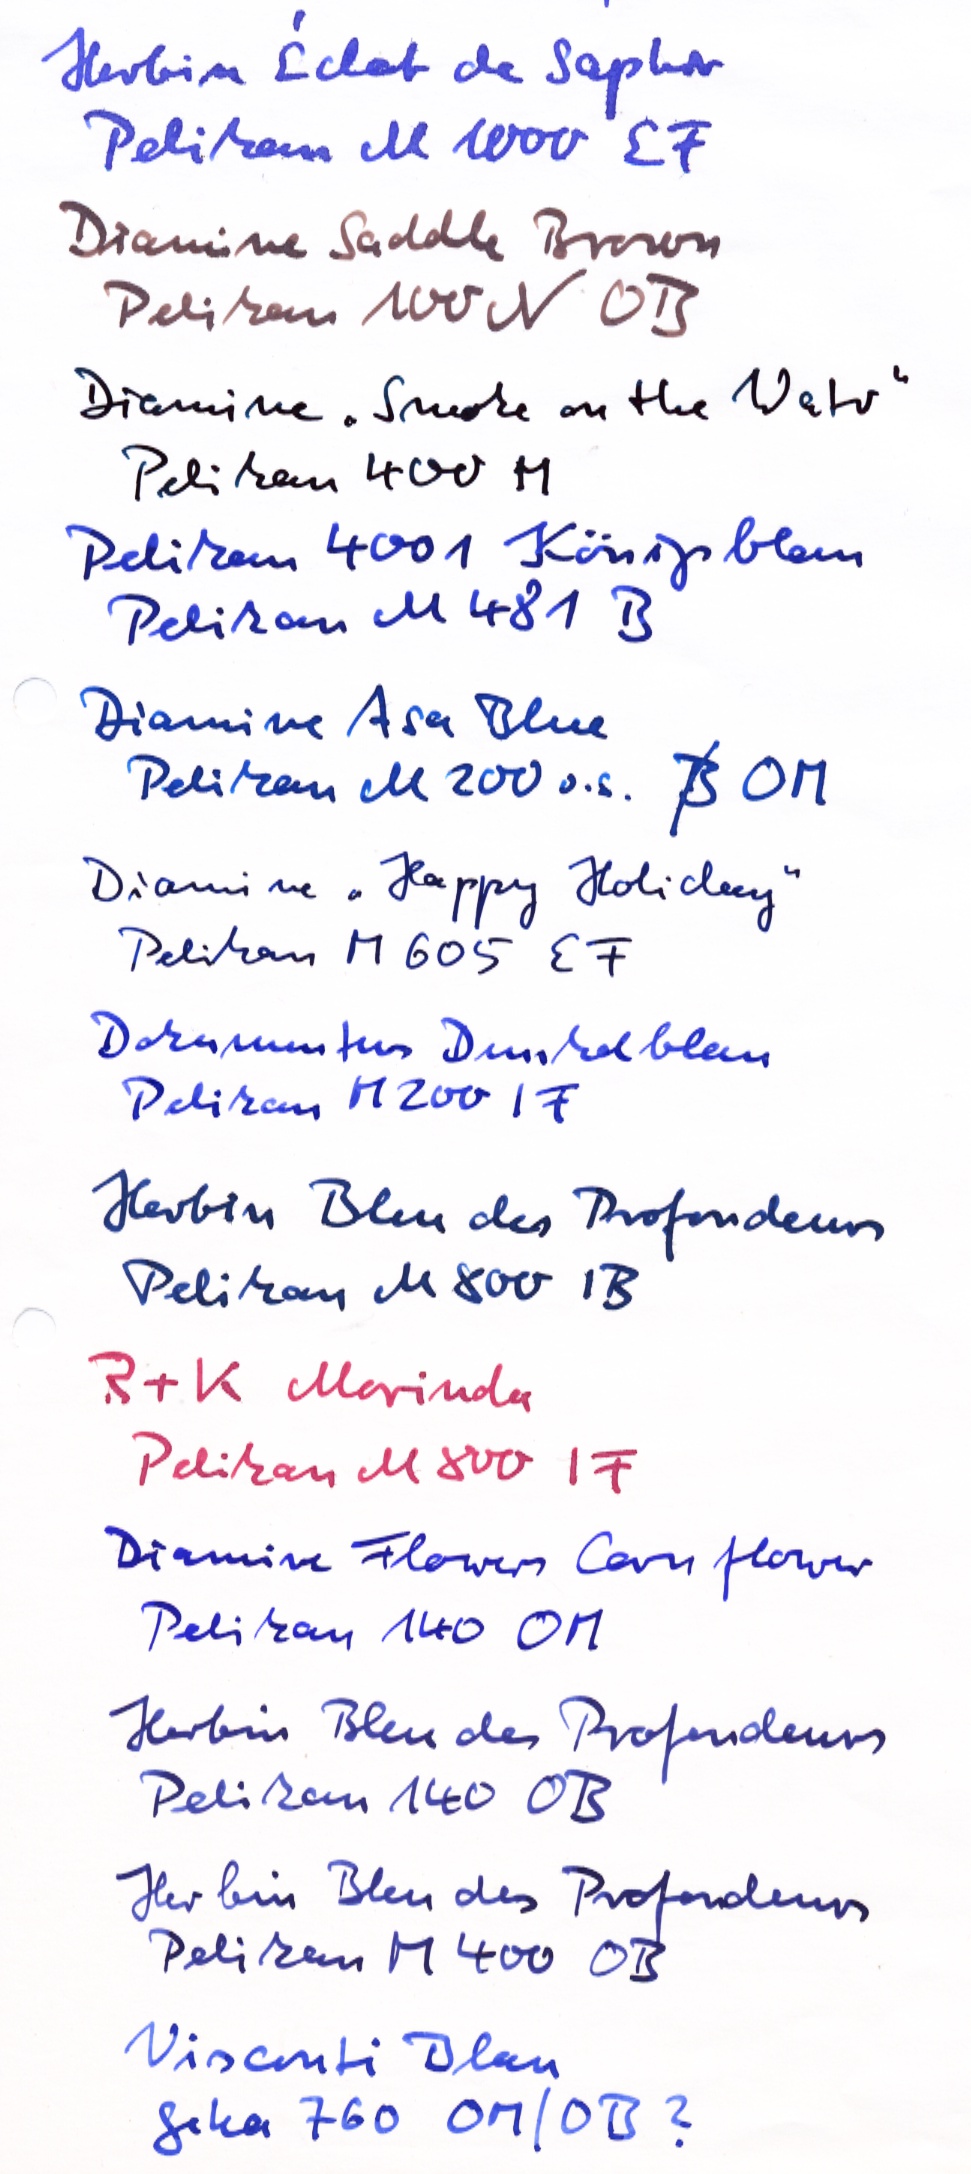 Herbin Éclat de Saphir
Pelikan M 1000 EF
Diamine Saddle Brown
Pelikan 100 N OB
Diamine „Smoke on the Water"
Pelikan 400 M
Pelikan 4001 Königsblau
Pelikan M 481 B
Diamine Asa Blue
Pelikan M 200 o.s. B OM
Diamine „Happy Holiday"
Pelikan M 605 EF
Dokumentus Dunkelblau
Pelikan M 200 IF
Herbin Bleu des Profondeurs
Pelikan M 800 IB
R+K Morinda
Pelikan M 800 IF
Diamine Flowers Cornflower
Pelikan 140 OM
Herbin Bleu des Profondeurs
Pelikan 140 OB
Herbin Bleu des Profondeurs
Pelikan M 400 OB
Visconti Blau
geha 760 OM/OB ?